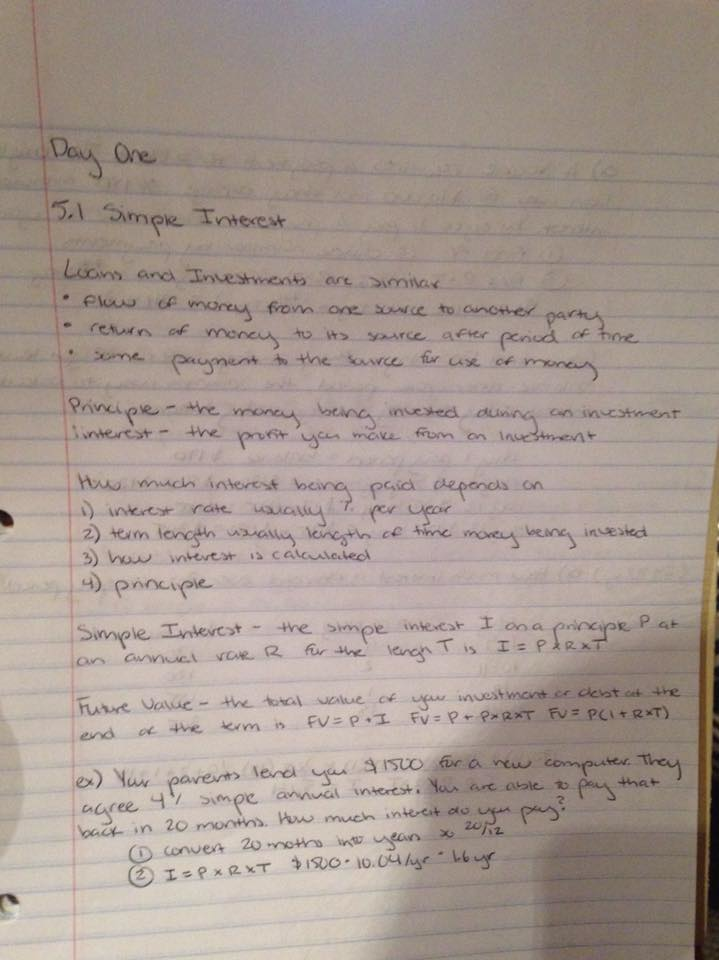 Day One
5.1 Simple Interest
Loans and Investments are similar
• flow of money from one source to another party
• return of money to its source after period of time
• some payment to the source for use of money
Principle - the money being invested during an investment
interest - the profit you make from an investment
How much interest being paid depends on
1) interest rate usually % per year
2) term length usually length of time money being invested
3) how interest is calculated
4) principle
Simple Interest - the simple interest I on a principle P at
an annual rate R for the lengh T is I = P x R x T
Future Value - the total value of your investment or debt at the
end of the term is FV = P + I FV = P + P x R x T FV = P(1 + R x T)
ex) Your parents lend you $1500 for a new computer. They
agree 4% simple annual interest. You are able to pay that
back in 20 months. How much interest do you pay?
① convert 20 moths into years so 20/12
② I = P x R x T $1500 · 0.04/yr · 1.6 yr